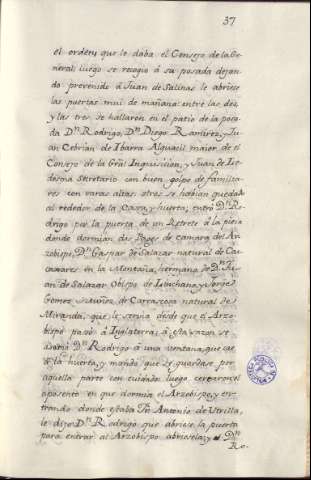 37
el orden, que le daba el Consejo de la Ge-
neral; luego se recogio à su posada dejan
do prevenido à Juan de Salinas le abriese
las puertas mui de mañana: entre las dos
y las tres se hallaron en el patio de la posa
da Dn. Rodrigo, Dn. Diego Ramirez, y Ju-
an Cebrian de Ibarra Alguacil maior de el
Consejo de la Gral Inquisicion, y Juan de Le-
desma Secretario con buen golpe de familia-
res con varas altas, otros se habian quedado
al rededor de la Casa, y huerta; entrò Dn. Ro-
drigo por la puerta de un Retrete à la pieza
donde dormian dos Pages de camara del Ar-
zobispo, Dn. Gaspar de Salazar natural de
en la Montaña, hermano de Dn. Ju-
an de Salazar Obispo de y Jorge
Gomez Muñoz de Carrascosa natural de
Miranda, que le servia desde que el Arzo-
bispo pasò à Inglaterra; à esta razon se
Dn. Rodrigo à una ventana, que cae
à la huerta, y mandò que se guardase por
aquella parte con cuidado: luego cercaron el
aposento en que dormia el Arzobispo, y en-
trando donde estaba Fr. Antonio de Utrilla,
le dijo Dn. Rodrigo que abriese la puerta
para entrar al Arzobispo abriosela; y Dn.
Ro-